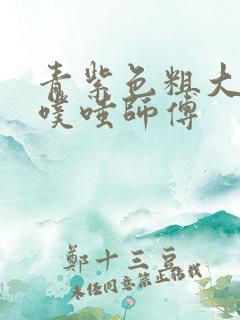 青紫色粗大
噗嗤師傅
鄭十三豆
未经同意禁止转载